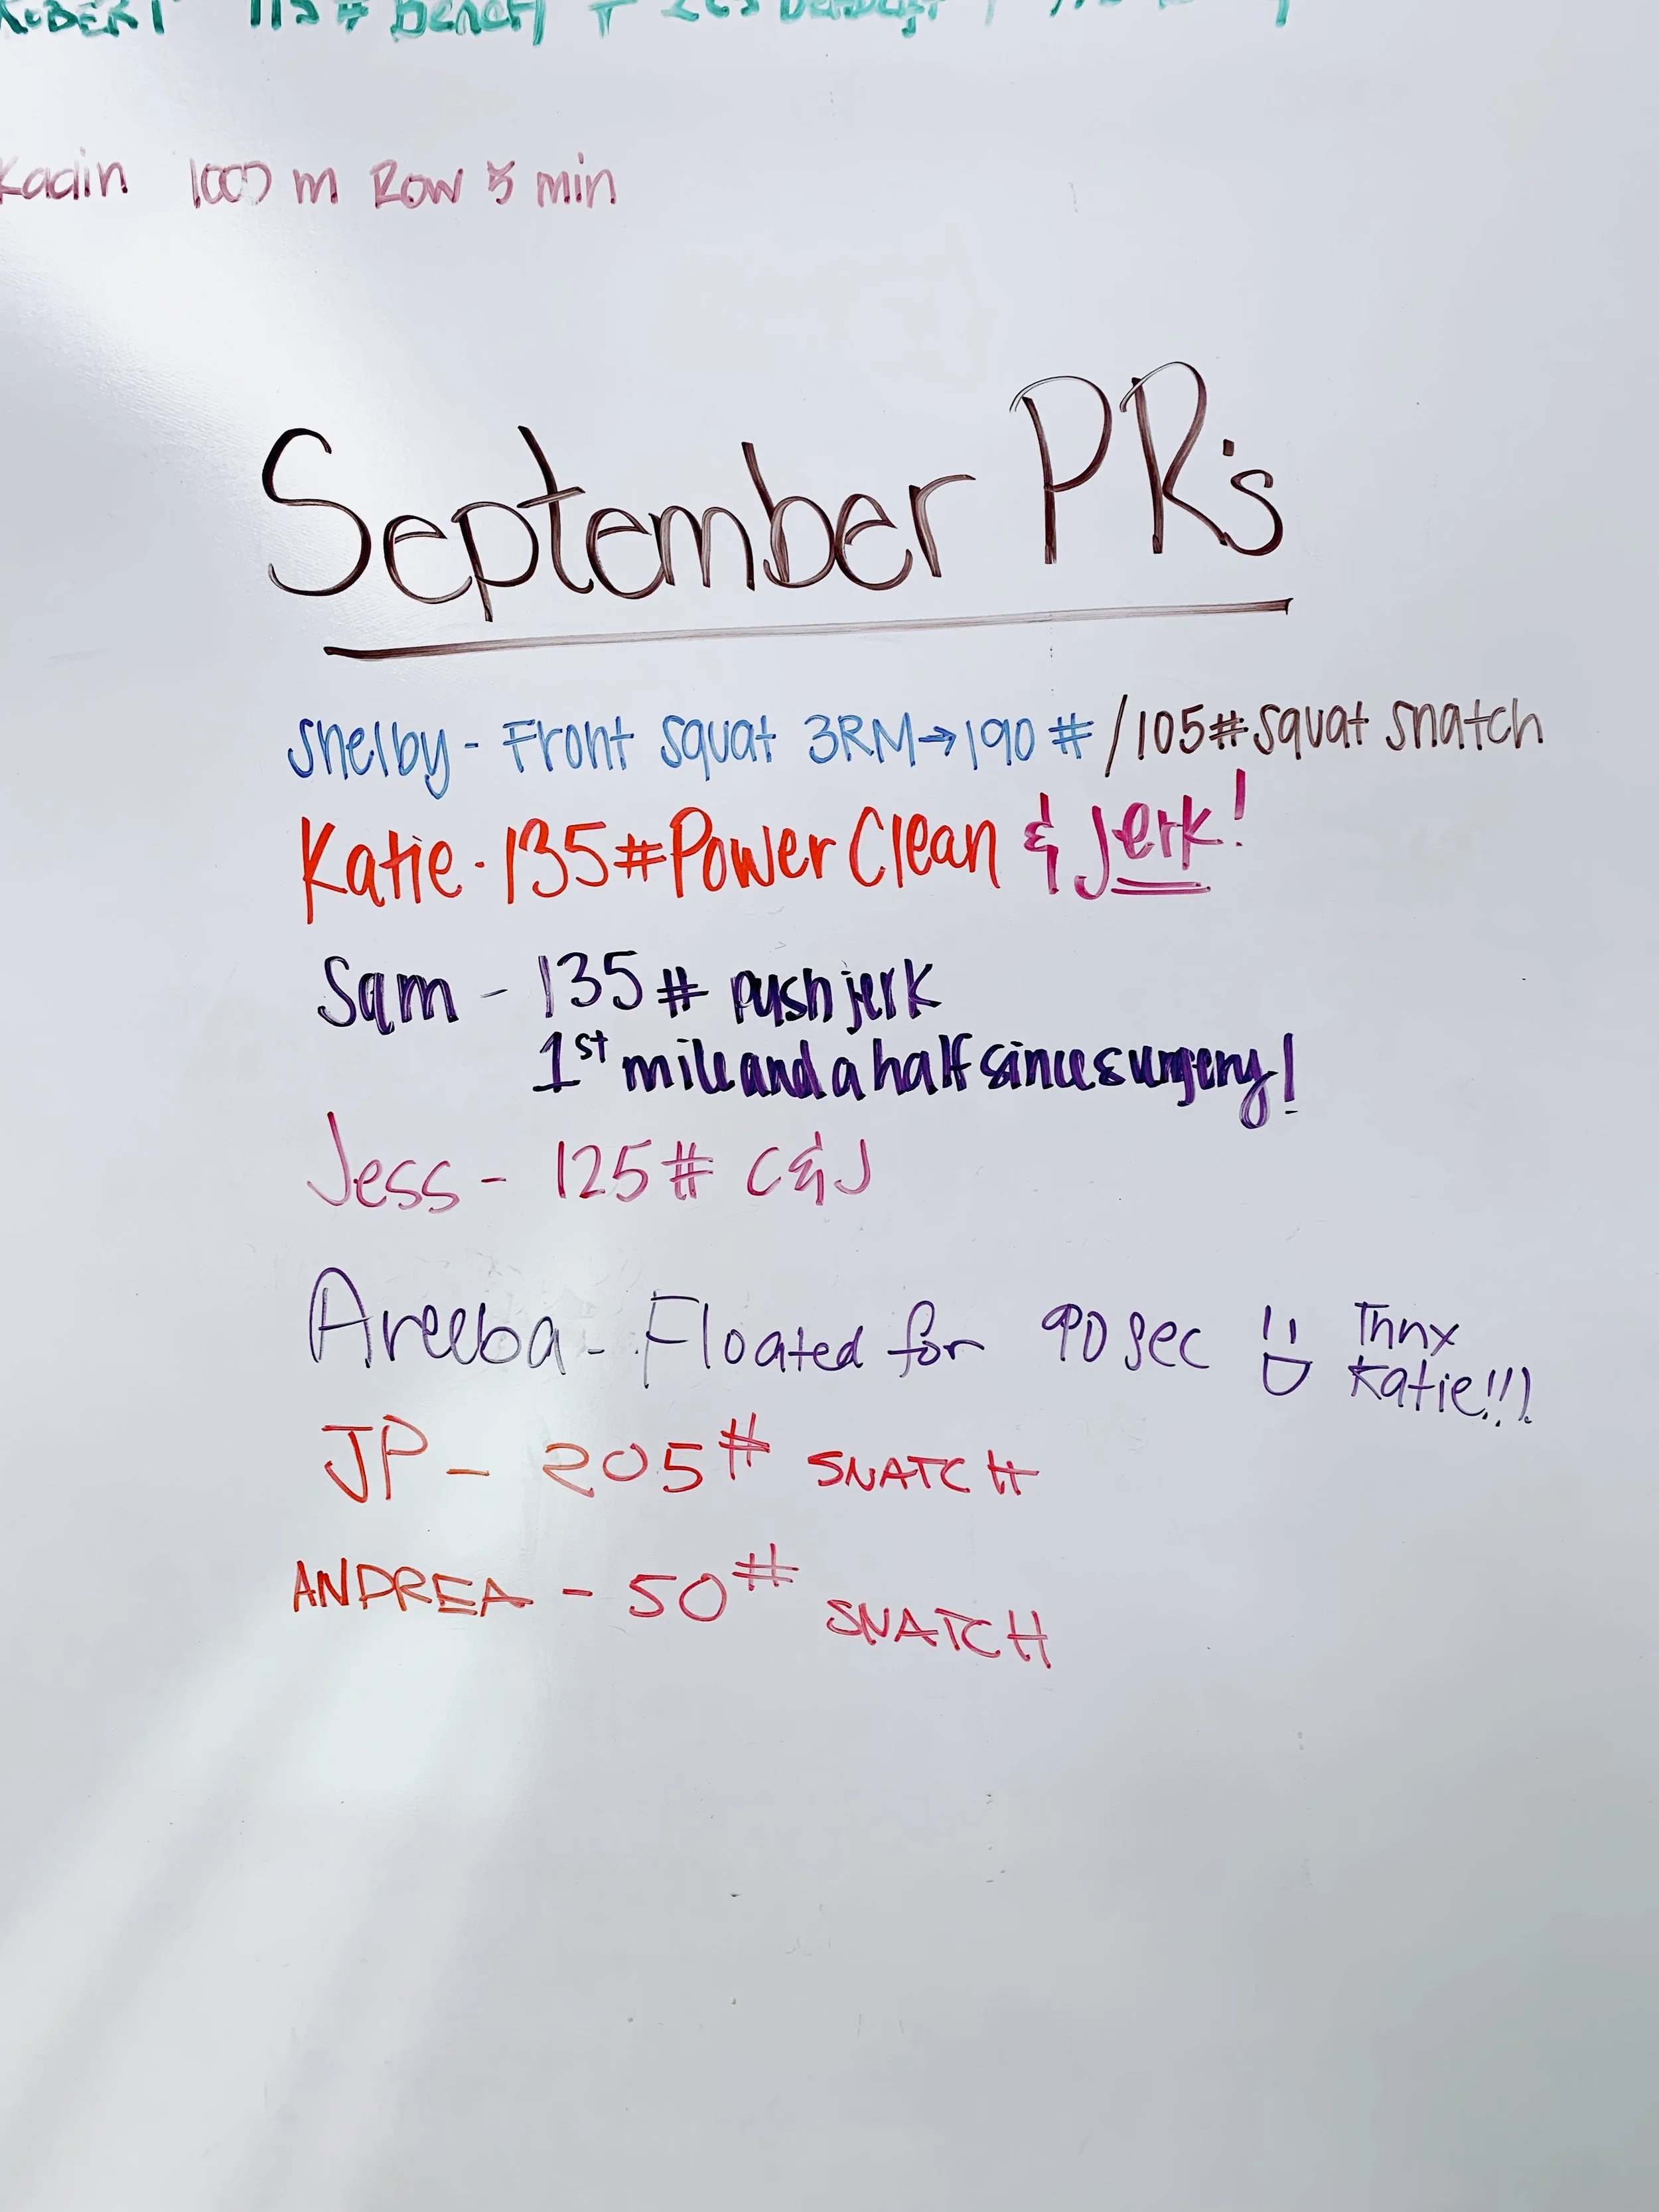 ROBERT 115# Bench
Kadin 1000 m Row 5 min
September PR's
Shelby - Front Squat 3RM→190# /105# Squat Snatch
Katie - 135# Power Clean & Jerk!
Sam - 135# push jerk
1st mile and a half since surgery!
Jess - 125# C&J
Areeba - Floated for 90 sec Thnx
Katie!!!
JP - 205# SNATCH
ANDREA - 50# SNATCH